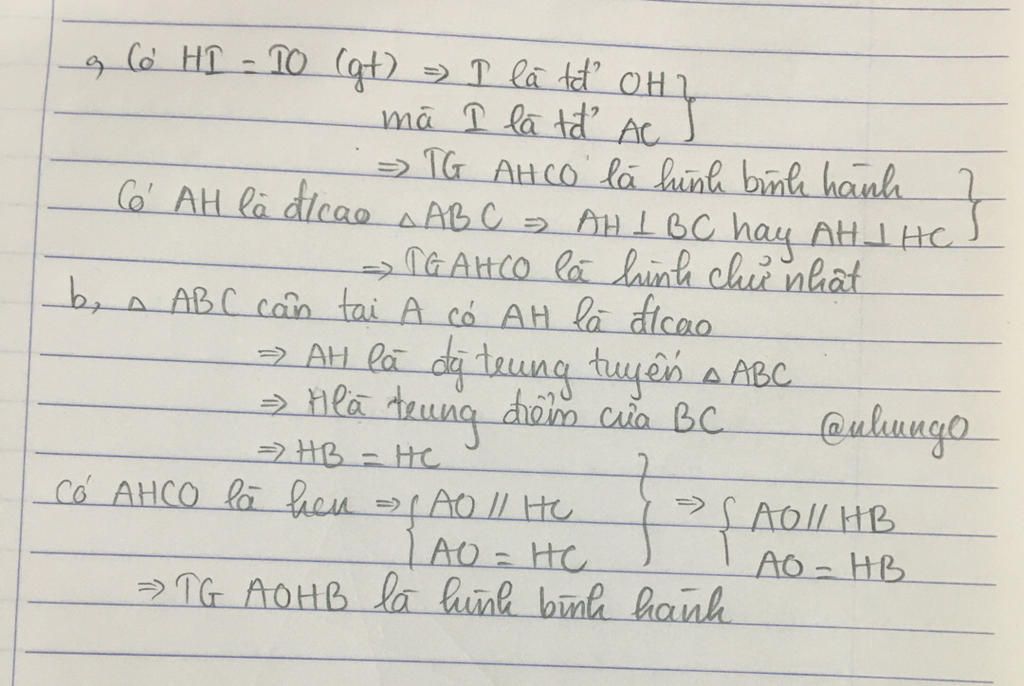 a, Có HI = IO (gt) ⇒ I là tđ' OH }
mà I là tđ' AC
⇒ TG AHCO là hình bình hành }
Có AH là đ/cao △ABC ⇒ AH ⊥ BC hay AH ⊥ HC
⇒ TG AHCO là hình chữ nhật
b, △ ABC cân tại A có AH là đ/cao
⇒ AH là đg trung tuyến △ ABC
⇒ H là trung điểm của BC @nhung0
⇒ HB = HC }
Có AHCO là hcn ⇒ { AO // HC ⇒ { AO // HB
AO = HC AO = HB
⇒ TG AOHB là hình bình hành